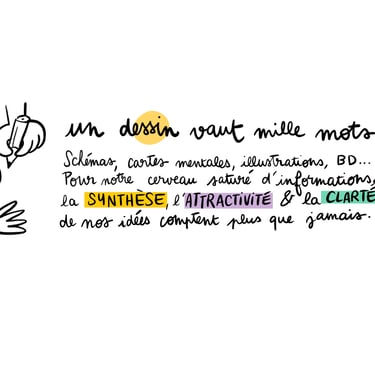 un dessin vaut mille mots
Schémas, cartes mentales, illustrations, BD...
Pour notre cerveau saturé d'informations,
la SYNTHÈSE, l'ATTRACTIVITÉ & la CLARTÉ
de nos idées comptent plus que jamais.